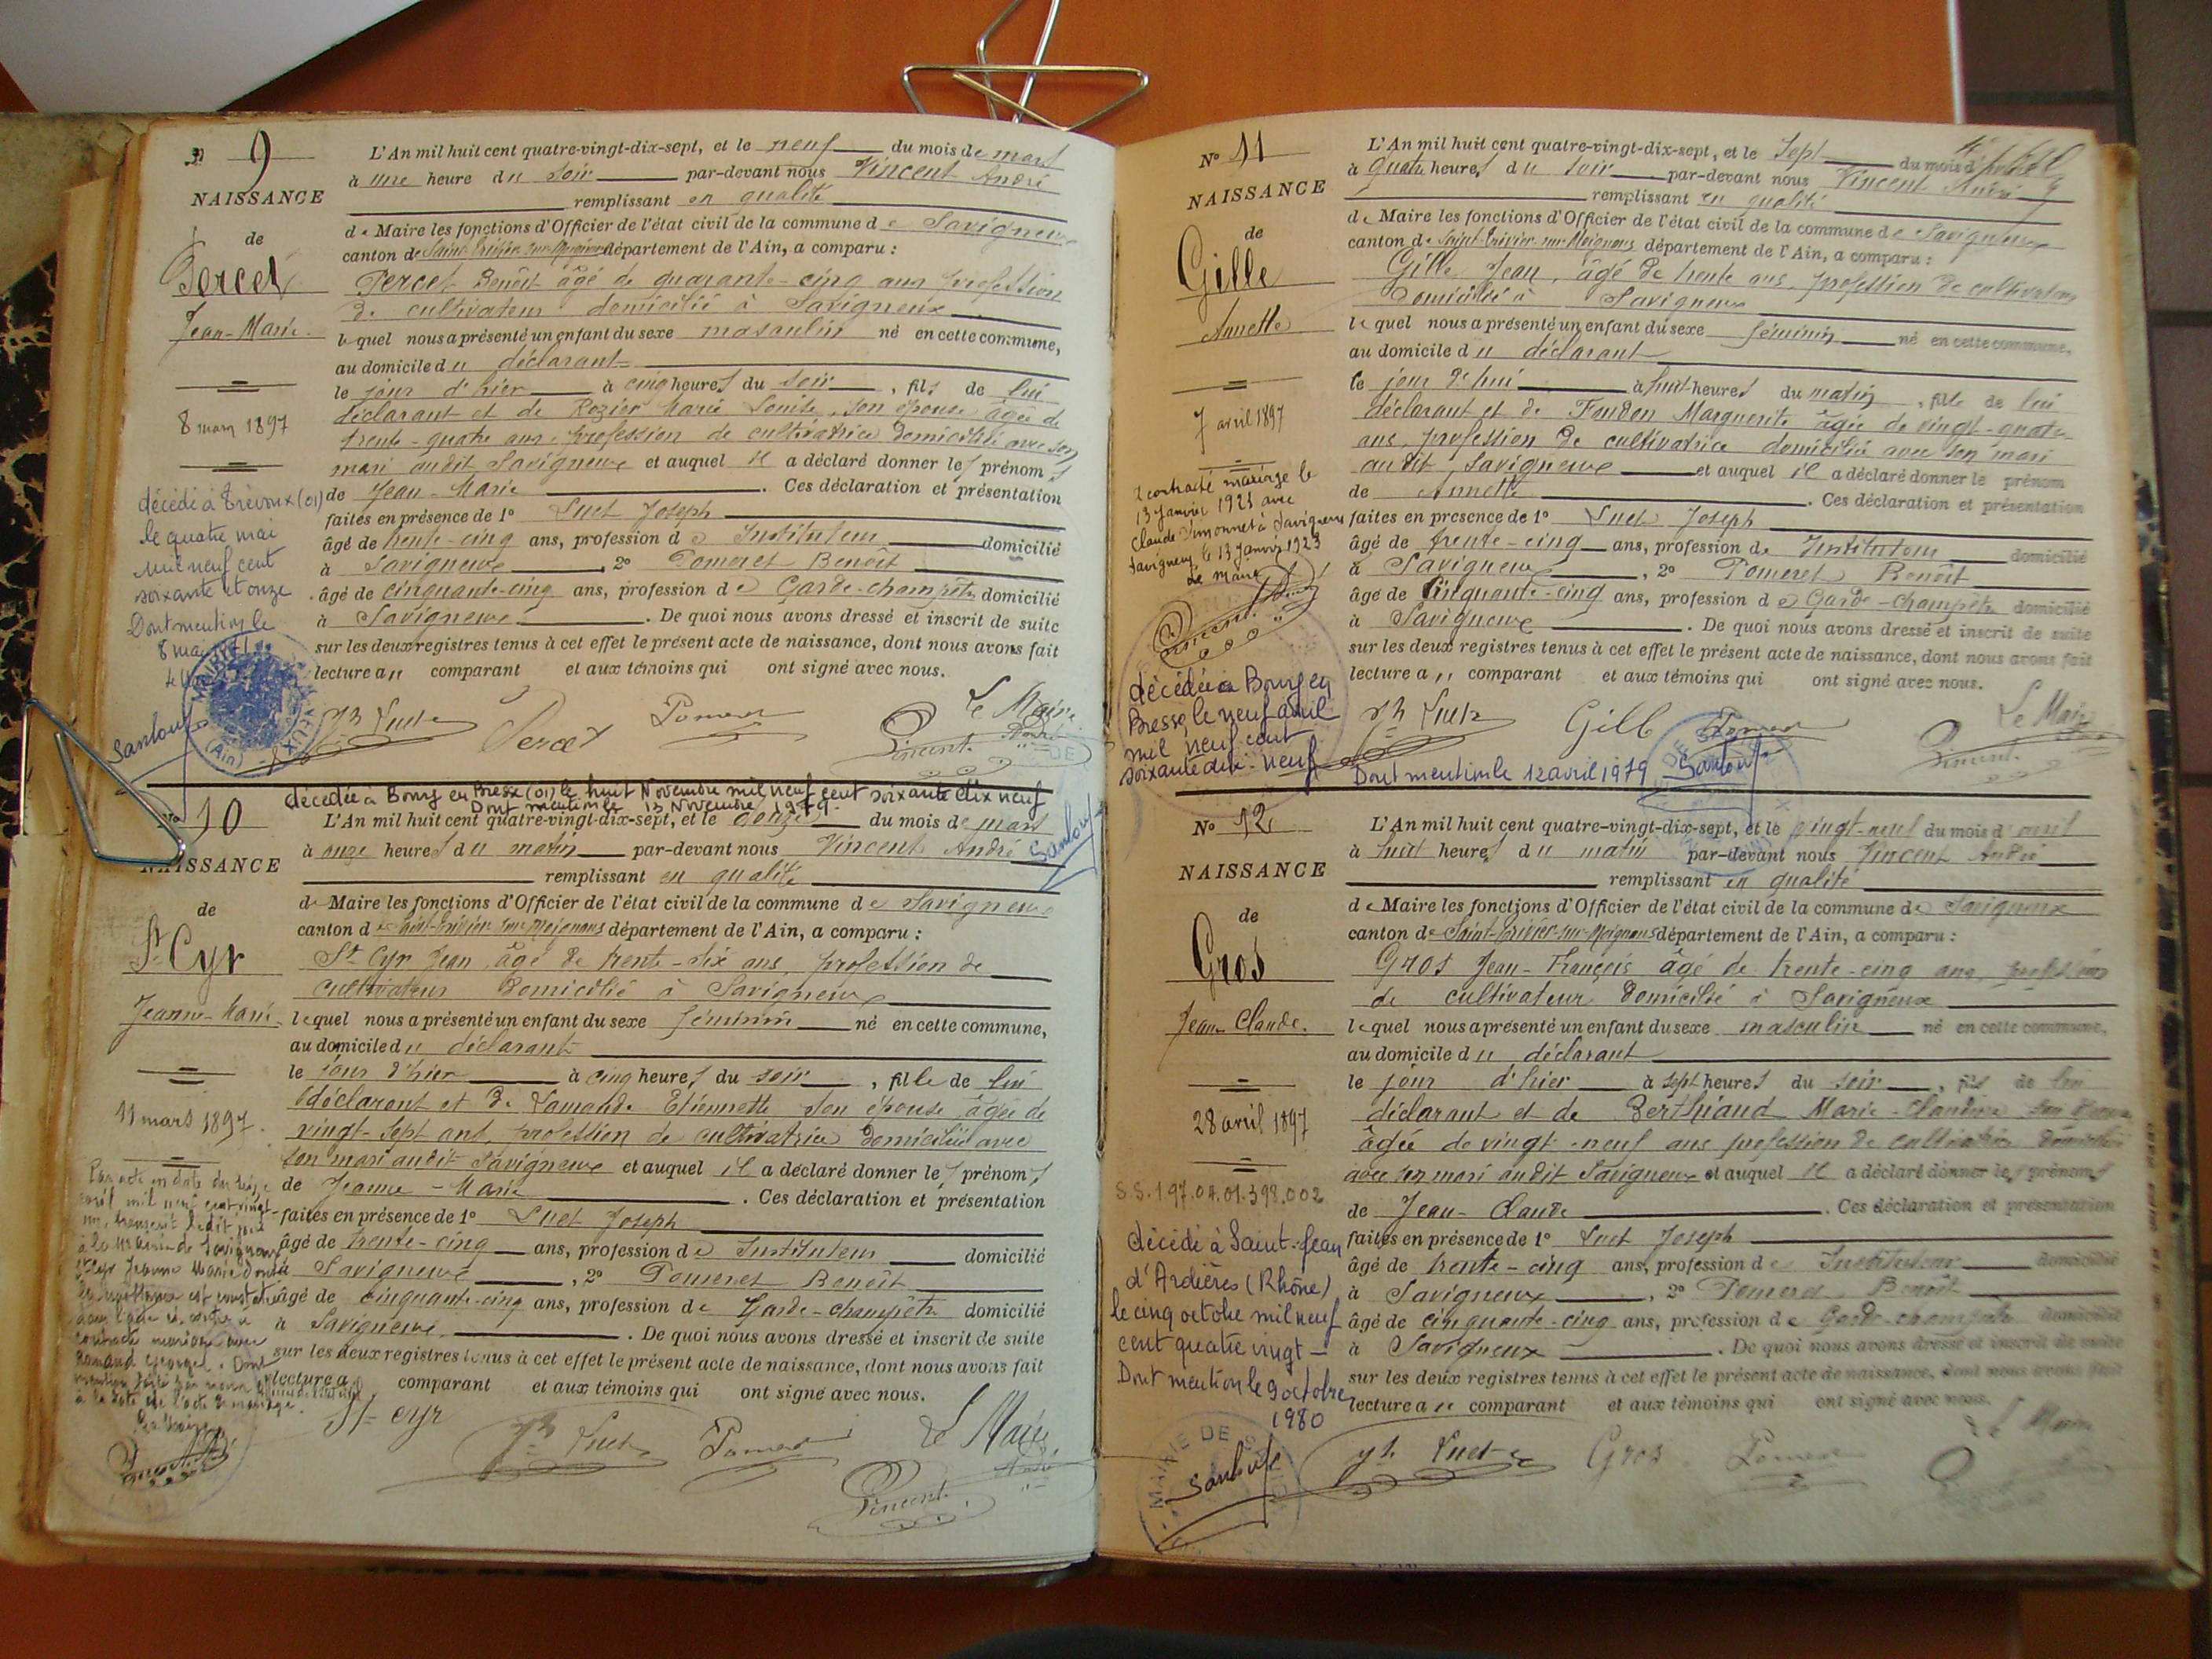 N° 9
NAISSANCE
de
Percet
Jean-Marie
8 mars 1897
décédé à Trévoux (01)
le quatre mai
mil neuf cent
soixante et onze
Dont mention le
8 mai 1971
L'An mil huit cent quatre-vingt-dix-sept, et le neuf du mois de mars
à une heure du soir par-devant nous Vincent André
remplissant en qualité
de Maire les fonctions d'Officier de l'état civil de la commune de Savigneux
canton de Saint-Trivier-sur-Moignans département de l'Ain, a comparu :
Percet Benoît âgé de quarante-cinq ans profession
de cultivateur domicilié à Savigneux
lequel nous a présenté un enfant du sexe masculin né en cette commune,
au domicile du déclarant
le jour d'hier à cinq heures du soir, fils de lui
déclarant et de Rozier Marie Louise, son épouse âgée de
trente-quatre ans, profession de cultivatrice domiciliée avec son
mari audit Savigneux et auquel il a déclaré donner les prénoms
de Jean-Marie. Ces déclaration et présentation
faites en présence de 1° Luet Joseph
âgé de trente-cinq ans, profession de Instituteur domicilié
à Savigneux, 2° Pomeret Benoît
âgé de cinquante-cinq ans, profession de Garde-champêtre domicilié
à Savigneux. De quoi nous avons dressé et inscrit de suite
sur les deux registres tenus à cet effet le présent acte de naissance, dont nous avons fait
lecture au comparant et aux témoins qui ont signé avec nous.
Jh Luet Percet Pomeret Le Maire
Vincent André
décédée à Bourg en Bresse (01) le huit Novembre mil neuf cent soixante dix neuf
Dont mention le 13 Novembre 1979.
N° 10
NAISSANCE
de
St Cyr
Jeanne-Marie
11 mars 1897.
L'An mil huit cent quatre-vingt-dix-sept, et le du mois de mars
à onze heures du matin par-devant nous Vincent André
remplissant en qualité
de Maire les fonctions d'Officier de l'état civil de la commune de Savigneux
canton de Saint-Trivier-sur-Moignans département de l'Ain, a comparu :
St Cyr Jean âgé de trente-six ans, profession de
cultivateur domicilié à Savigneux
lequel nous a présenté un enfant du sexe féminin né en cette commune,
au domicile du déclarant
le jour d'hier à cinq heures du soir, fille de lui
déclarant et de Lamande Etiennette son épouse âgée de
vingt-sept ans, profession de cultivatrice domiciliée avec
son mari audit Savigneux et auquel il a déclaré donner les prénoms
de Jeanne-Marie. Ces déclaration et présentation
faites en présence de 1° Luet Joseph
âgé de trente-cinq ans, profession de Instituteur domicilié
à Savigneux, 2° Pomeret Benoît
âgé de cinquante-cinq ans, profession de Garde-champêtre domicilié
à Savigneux. De quoi nous avons dressé et inscrit de suite
sur les deux registres tenus à cet effet le présent acte de naissance, dont nous avons fait
lecture au comparant et aux témoins qui ont signé avec nous.
St-Cyr Jh Luet Pomeret Le Maire
Vincent André
N° 11
NAISSANCE
de
Gille
Annette
7 avril 1897
a contracté mariage le
13 janvier 1923 avec
Claude Simonnet à Savigneux
Savigneux, le 13 janvier 1923
Le Maire
Vincent
décédée à Bourg en
Bresse, le neuf avril
mil neuf cent
soixante dix-neuf
Dont mention le 12 avril 1979
L'An mil huit cent quatre-vingt-dix-sept, et le sept du mois d'avril
à quatre heures du soir par-devant nous Vincent André
remplissant en qualité
de Maire les fonctions d'Officier de l'état civil de la commune de Savigneux
canton de Saint-Trivier-sur-Moignans département de l'Ain, a comparu :
Gille Jean, âgé de trente ans, profession de cultivateur
domicilié à Savigneux
lequel nous a présenté un enfant du sexe féminin né en cette commune,
au domicile du déclarant
le jour d'hui à huit heures du matin, fille de lui
déclarant et de Foudon Marguerite âgée de vingt-quatre
ans, profession de cultivatrice domiciliée avec son mari
audit Savigneux et auquel il a déclaré donner le prénom
de Annette. Ces déclaration et présentation
faites en présence de 1° Luet Joseph
âgé de trente-cinq ans, profession de Instituteur domicilié
à Savigneux, 2° Pomeret Benoît
âgé de cinquante-cinq ans, profession de Garde-champêtre domicilié
à Savigneux. De quoi nous avons dressé et inscrit de suite
sur les deux registres tenus à cet effet le présent acte de naissance, dont nous avons fait
lecture au comparant et aux témoins qui ont signé avec nous.
Jh Luet Gille Pomeret Le Maire
Vincent
N° 12
NAISSANCE
de
Gros
Jean-Claude.
28 avril 1897
S.S.1.97.04.01.398.002
décédé à Saint-Jean
d'Ardières (Rhône)
le cinq octobre mil neuf
cent quatre vingt
Dont mention le 9 octobre
1980
L'An mil huit cent quatre-vingt-dix-sept, et le vingt-neuf du mois d'avril
à huit heures du matin par-devant nous Vincent André
remplissant en qualité
de Maire les fonctions d'Officier de l'état civil de la commune de Savigneux
canton de Saint-Trivier-sur-Moignans département de l'Ain, a comparu :
Gros Jean-François âgé de trente-cinq ans, profession
de cultivateur domicilié à Savigneux
lequel nous a présenté un enfant du sexe masculin né en cette commune,
au domicile du déclarant
le jour d'hier à sept heures du soir, fils de lui
déclarant et de Berthiand Marie-Claudine son épouse
âgée de vingt-neuf ans profession de cultivatrice domiciliée
avec son mari audit Savigneux et auquel il a déclaré donner les prénoms
de Jean-Claude. Ces déclaration et présentation
faites en présence de 1° Luet Joseph
âgé de trente-cinq ans, profession de Instituteur domicilié
à Savigneux, 2° Pomeret Benoît
âgé de cinquante-cinq ans, profession de Garde-champêtre domicilié
à Savigneux. De quoi nous avons dressé et inscrit de suite
sur les deux registres tenus à cet effet le présent acte de naissance, dont nous avons fait
lecture au comparant et aux témoins qui ont signé avec nous.
Jh Luet Gros Pomeret Le Maire
MAIRIE DE